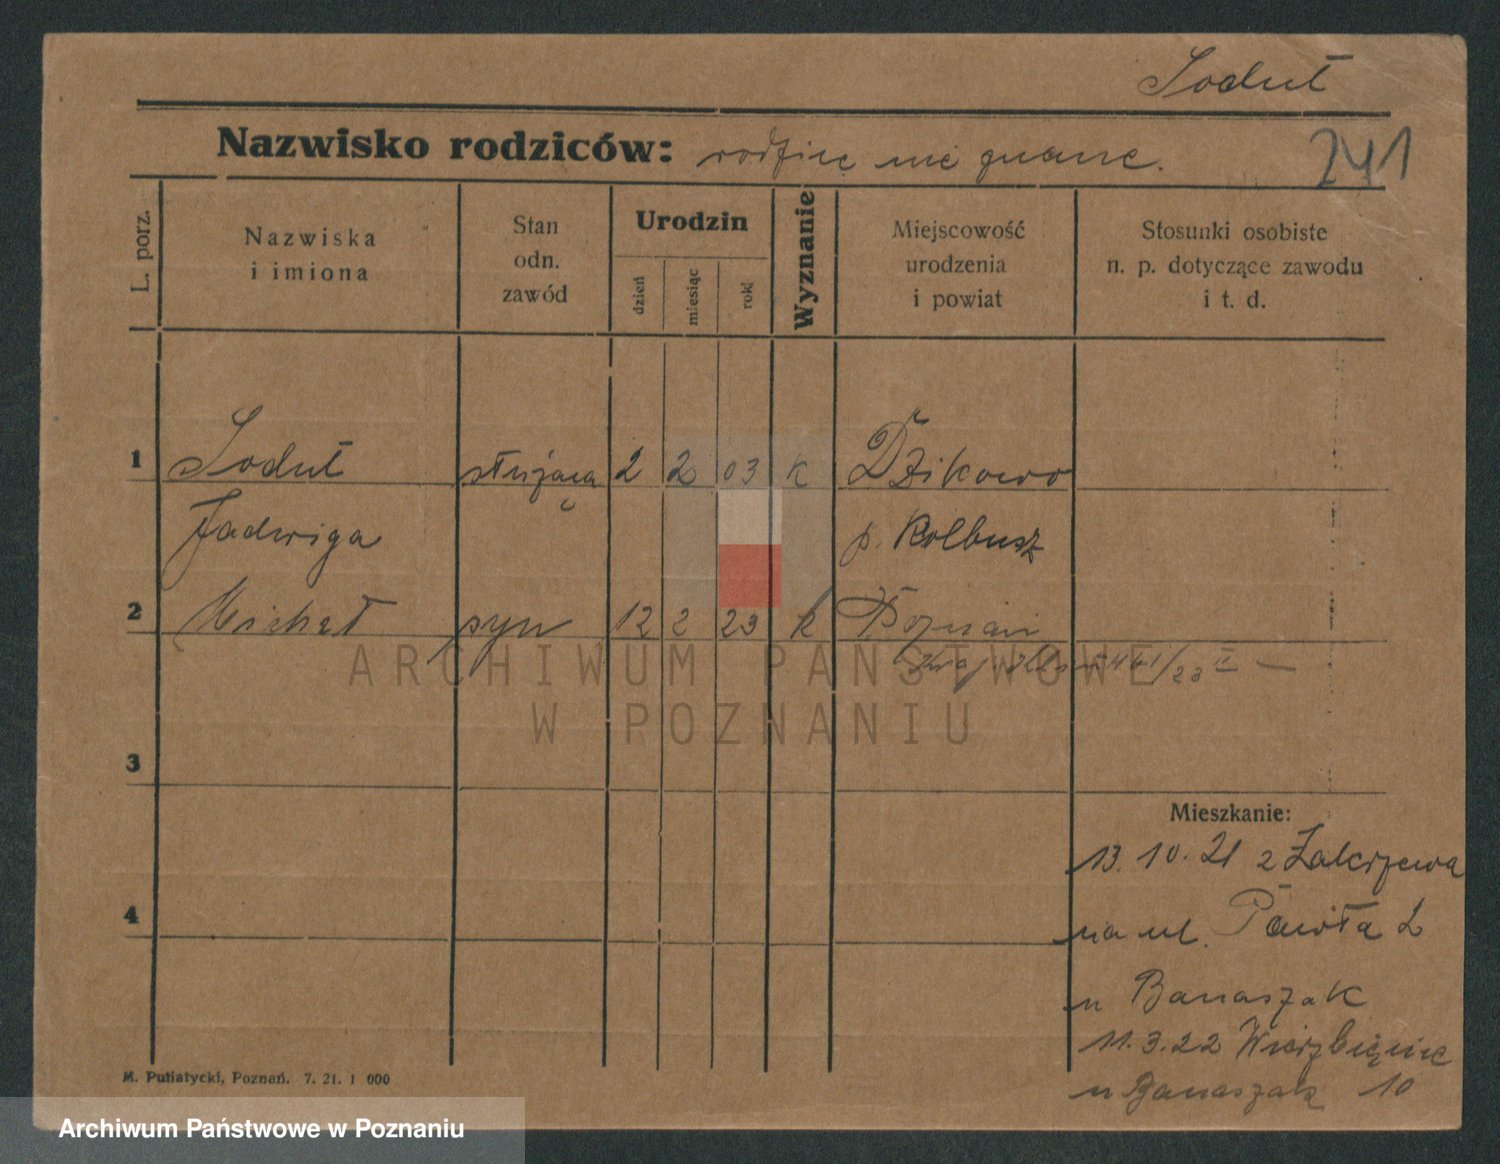 Soduł
Nazwisko rodziców: rodzice nie znane.
241
L. porz.
Nazwiska
i imiona
Stan
odn.
zawód
Urodzin
dzień
miesiąc
rok
Wyznanie
Miejscowość
urodzenia
i powiat
Stosunki osobiste
n. p. dotyczące zawodu
i t. d.
1 Soduł służąca 2 2 03 k Dzikowo
Jadwiga p. Kolbusz
2 Michał syn 12 2 23 k Poznań
461/23 II —
ARCHIWUM PAŃSTWOWE
W POZNANIU
3
4
Mieszkanie:
13. 10. 21 z Zakrzewa
na ul. Pawła 2
u Banaszak
11. 3. 22 Wierzbięcice
u Banaszak 10
M. Putiatycki, Poznań. 7. 21. 1 000
Archiwum Państwowe w Poznaniu